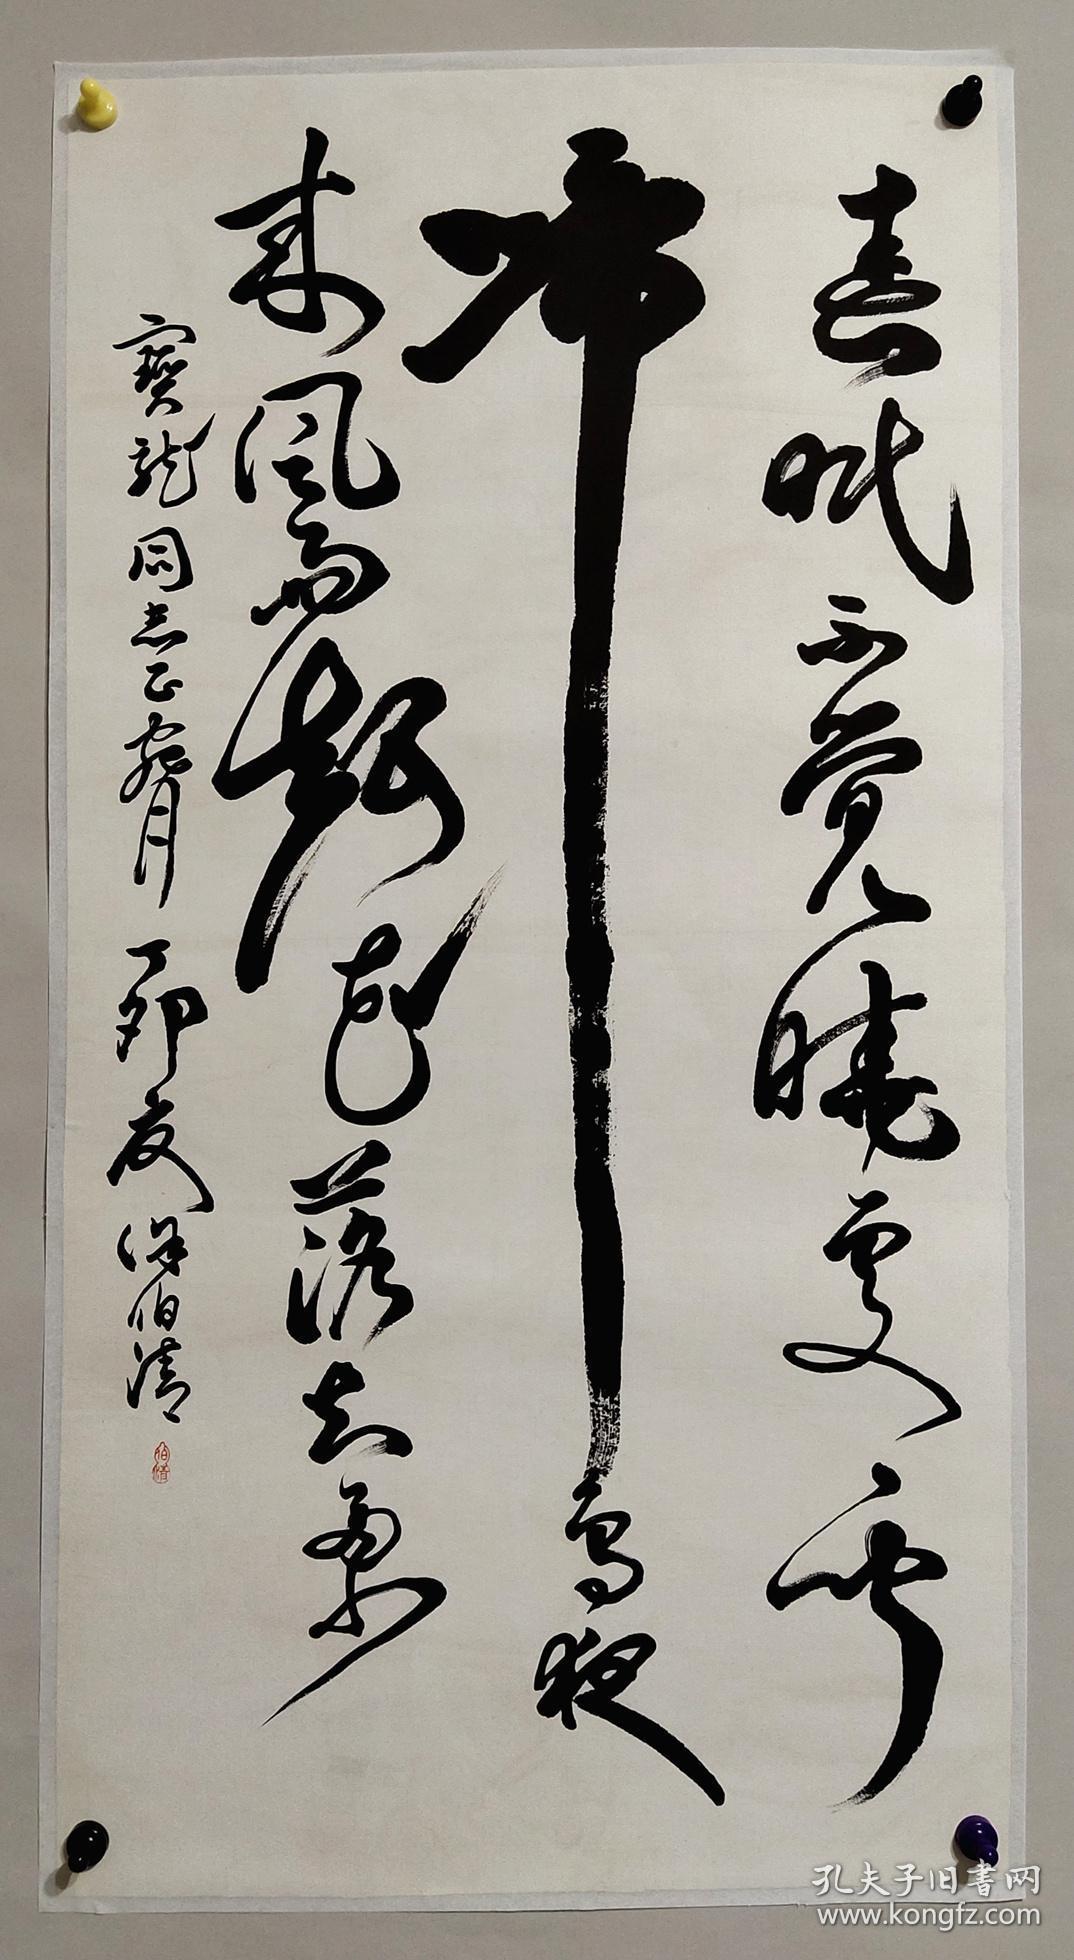 春眠不覺曉處々聞
啼鳥夜
来風雨聲花落知多少
寶龍同志正 丁卯夏徐伯清
伯清
孔夫子旧書网
www.kongfz.com